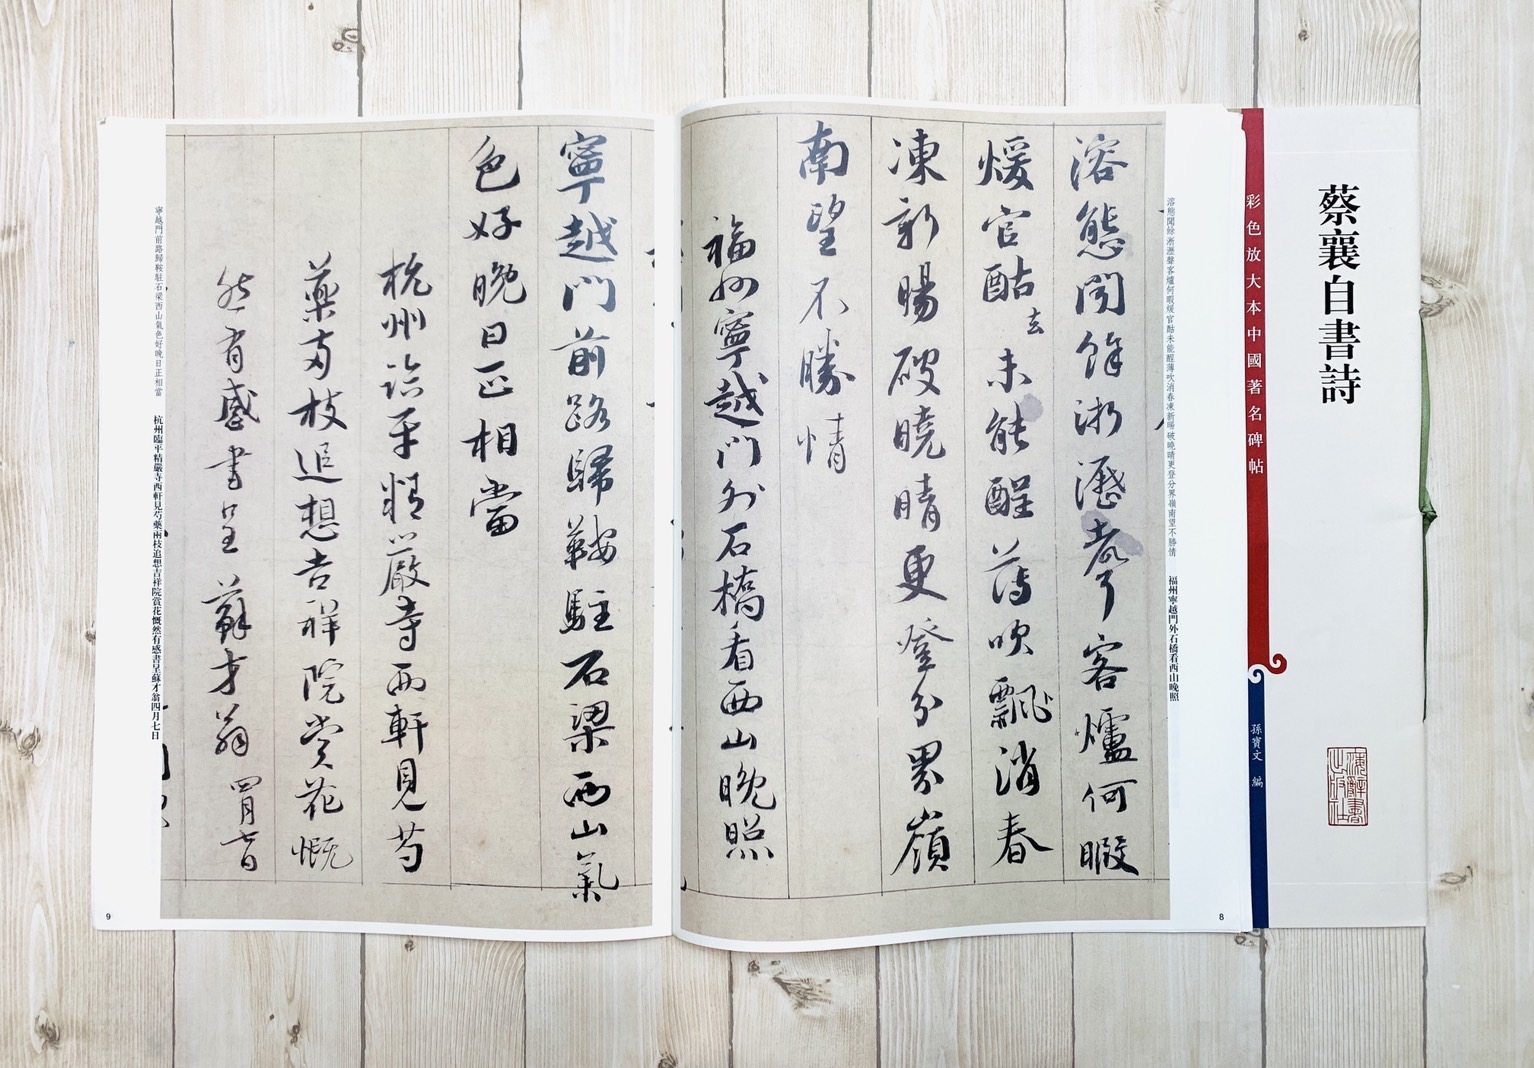 蔡襄自書詩
彩色放大本中國著名碑帖
孫寶文 編
海辭書出版社
溶態閒餘淅瀝聲客爐何暇煖官酤未能醒薄吹消春凍新暘破曉晴更登分界嶺南望不勝情
福州寧越門外石橋看西山晚照
溶態閒餘淅瀝聲客爐何暇
煖官酤去未能醒薄吹飄消春
凍新暘破曉晴更登分界嶺
南望不勝情
福州寧越門外石橋看西山晚照
8
寧越門前路歸鞍駐石梁西山氣
色好晚日正相當
杭州臨平精嚴寺西軒見芍
藥兩枝追想吉祥院賞花慨
然有感書呈蘇才翁四月七日
寧越門前路歸鞍駐石梁西山氣色好晚日正相當
杭州臨平精嚴寺西軒見芍藥兩枝追想吉祥院賞花慨然有感書呈蘇才翁四月七日
9